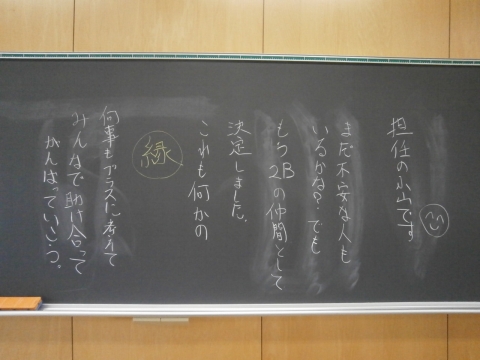 担任の小山です
まだ不安な人も
いるかな?でも
もう2Bの仲間として
決定しました。
これも何かの
縁
何事もプラスに考えて
みんなで助け合って
がんばっていこう。